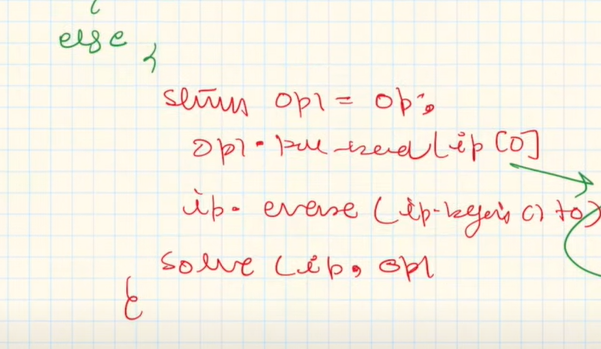 {
else {
string op1 = op;
op1.push_back(ip[0]
ip.erase(ip.begin()+0)
solve(ip, op1
}